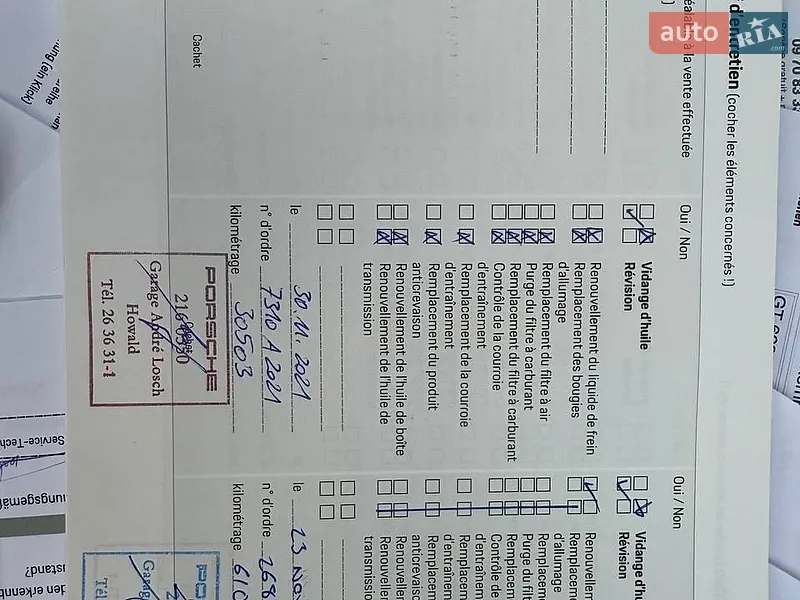 auto RIA.com
d'entretien (cocher les éléments concernés !)
à la vente effectuée
Cachet
Oui / Non
Vidange d'huile
Révision
Renouvellement du liquide de frein
Remplacement des bougies
d'allumage
Remplacement du filtre à air
Purge du filtre à carburant
Remplacement du filtre à carburant
Contrôle de la courroie
d'entraînement
Remplacement de la courroie
d'entraînement
Remplacement du produit
anticorevaison
Renouvellement de l'huile de boîte
Renouvellement de l'huile de
transmission
le 30.11.2021
n° d'ordre 7310 A 2021
kilométrage 30503
PORSCHE
Garage André Losch
Howald
Tél. 26 36 31-1
Oui / Non
Vidange d'hu
Révision
Renouvellem
Remplaceme
d'allumage
Remplacem
Purge du filt
Remplacem
Contrôle de
d'entraînem
Remplacem
d'entraînem
Remplacem
anticorevais
Renouvelle
Renouvelle
transmissio
le 23 Nov
n° d'ordre 268
kilométrage 610
PO
Garag
Tél
Service-Tech
(ein Klick)